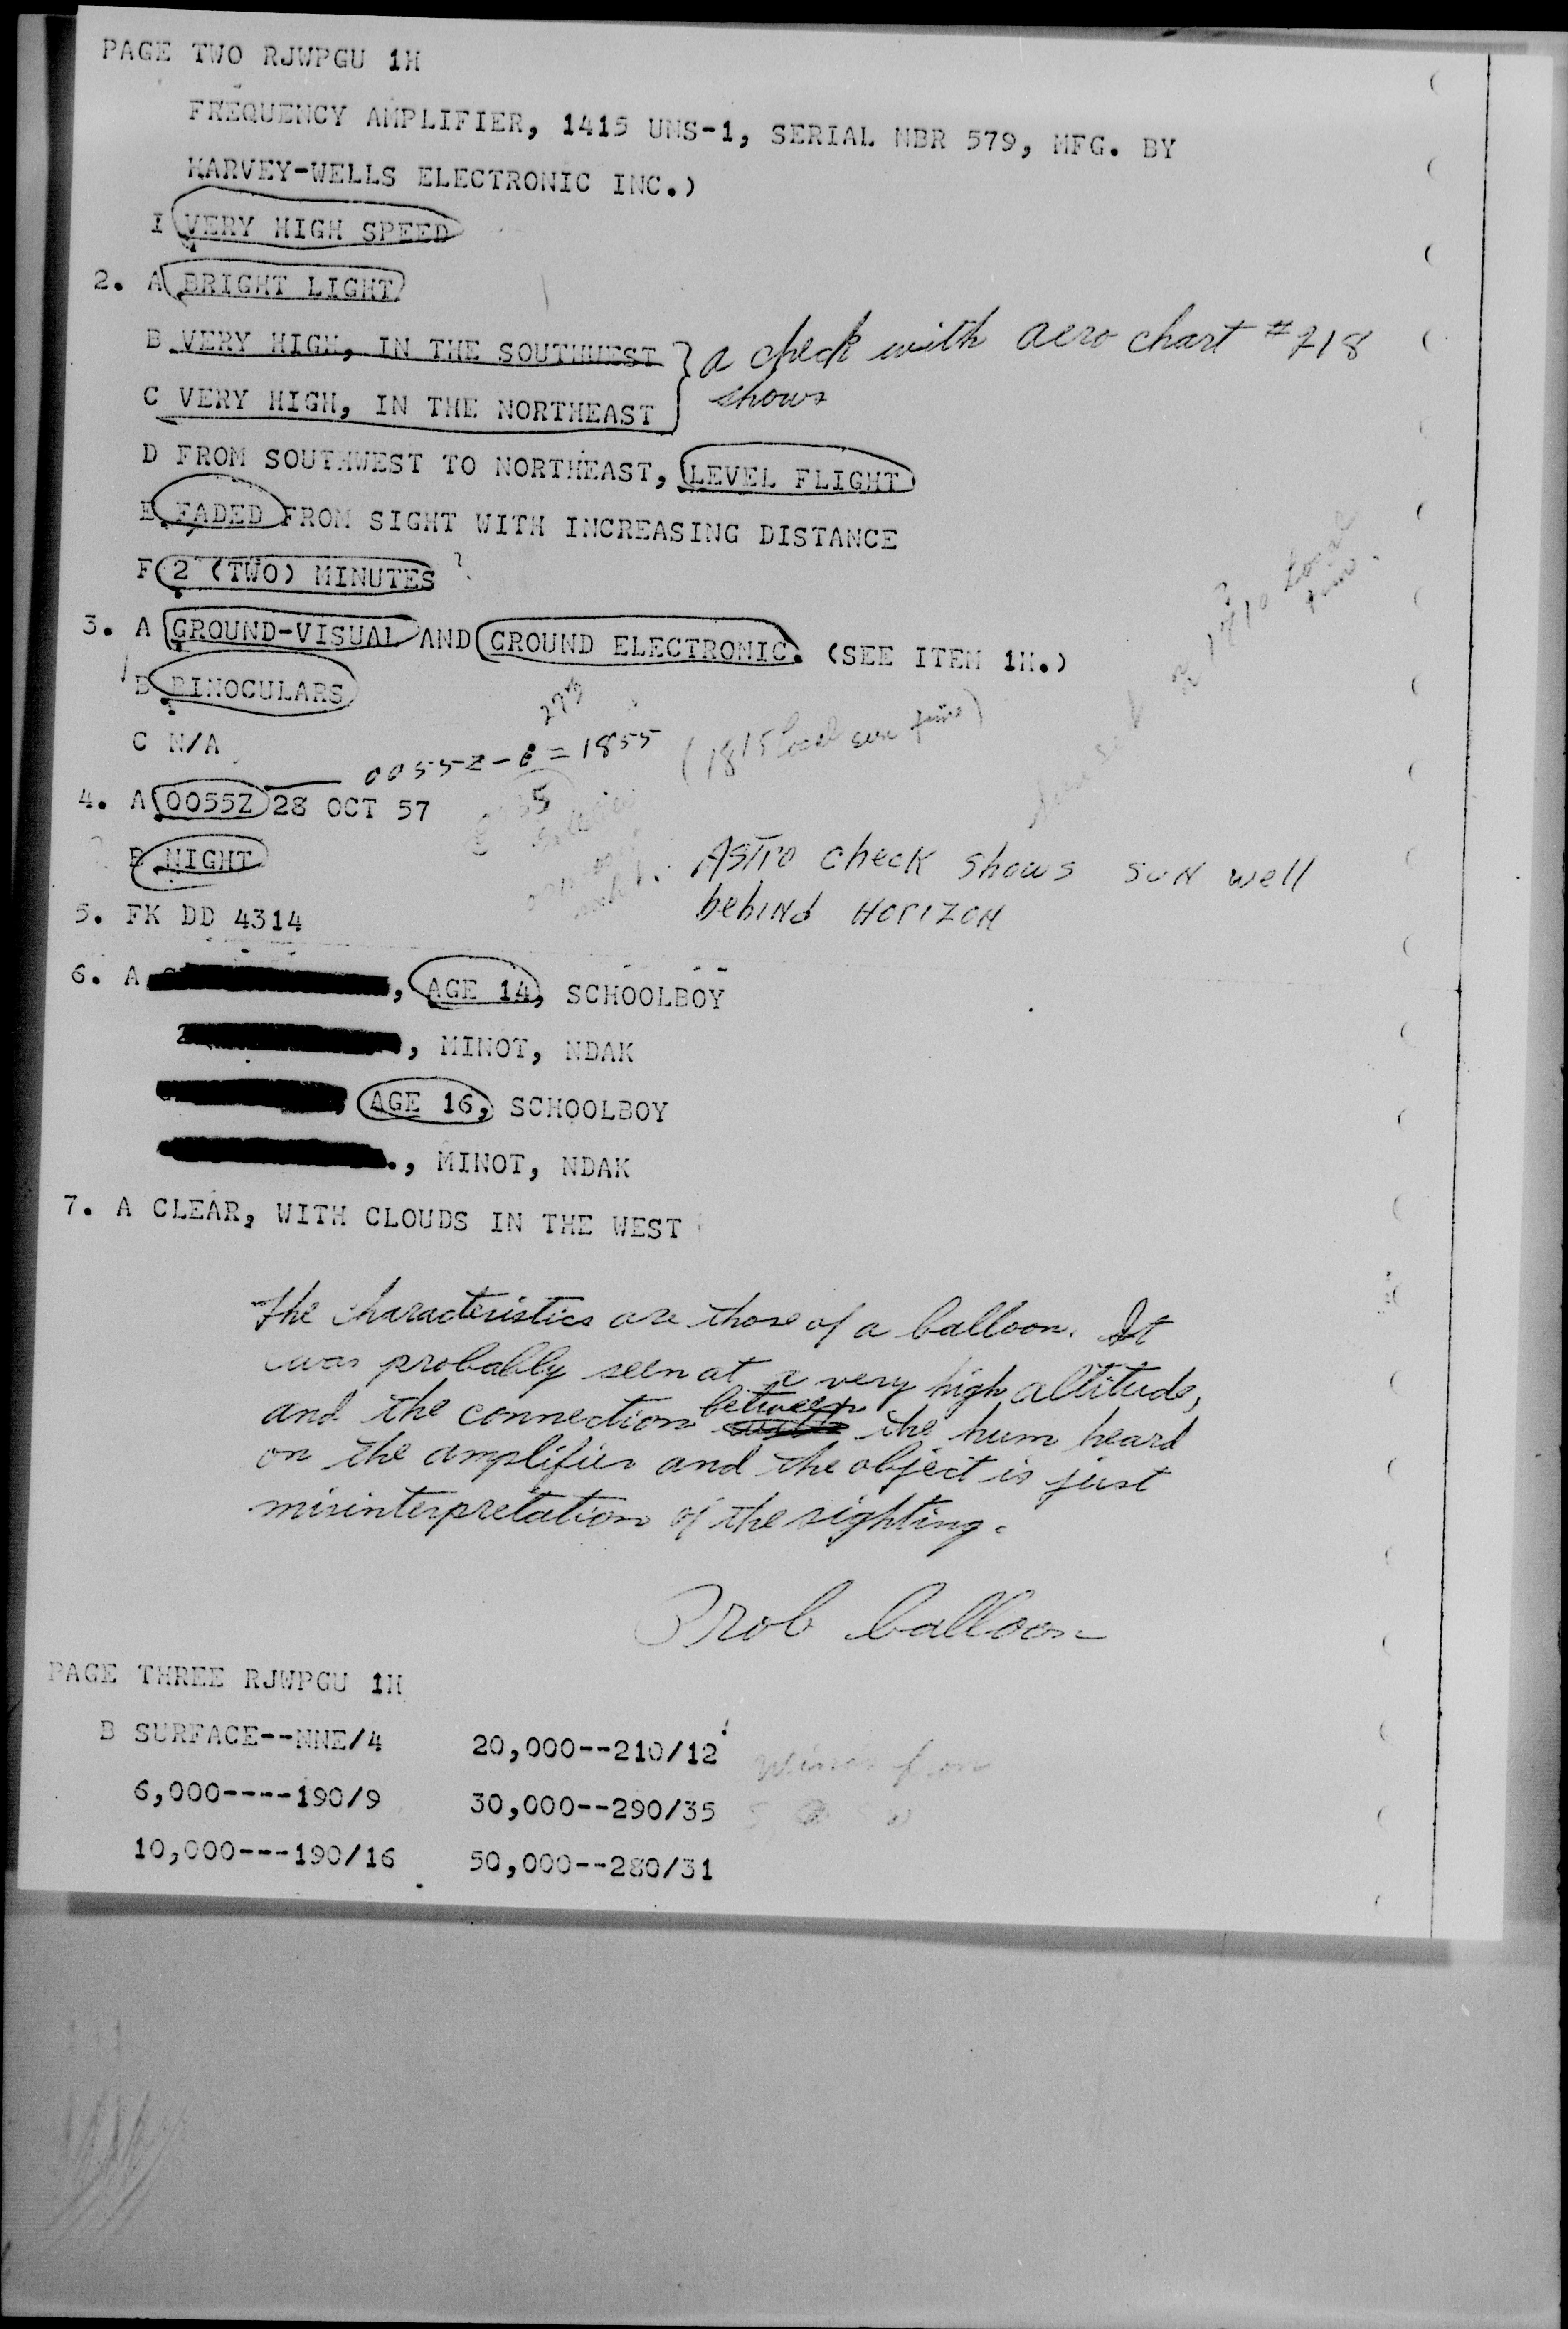 PAGE TWO RJWPGU 1H
FREQUENCY AMPLIFIER, 1415 UNS-1, SERIAL NBR 579, MFG. BY
HARVEY-WELLS ELECTRONIC INC.)
I VERY HIGH SPEED
2. A BRIGHT LIGHT
B VERY HIGH, IN THE SOUTHWEST } a check with aero chart #718
C VERY HIGH, IN THE NORTHEAST shows
D FROM SOUTHWEST TO NORTHEAST, LEVEL FLIGHT
E FADED FROM SIGHT WITH INCREASING DISTANCE
F 2 (TWO) MINUTES ?
3. A GROUND-VISUAL AND GROUND ELECTRONIC. (SEE ITEM 1H.)
B BINOCULARS
273
C N/A
0055Z-6 = 1855 (1815 local sun time)
4. A 0055Z 28 OCT 57
B NIGHT
Astro check shows SUN well
behind Horizon
5. FK DD 4314
6. A , AGE 14, SCHOOLBOY
, MINOT, NDAK
AGE 16, SCHOOLBOY
., MINOT, NDAK
7. A CLEAR, WITH CLOUDS IN THE WEST
The characteristics are those of a balloon. It
was probably seen at a very high altitude,
and the connection between the hum heard
on the amplifier and the object is just
misinterpretation of the sighting.
Prob balloon
PAGE THREE RJWPGU 1H
B SURFACE--NNE/4 20,000--210/12
6,000----190/9 30,000--290/35
10,000---190/16 50,000--280/31